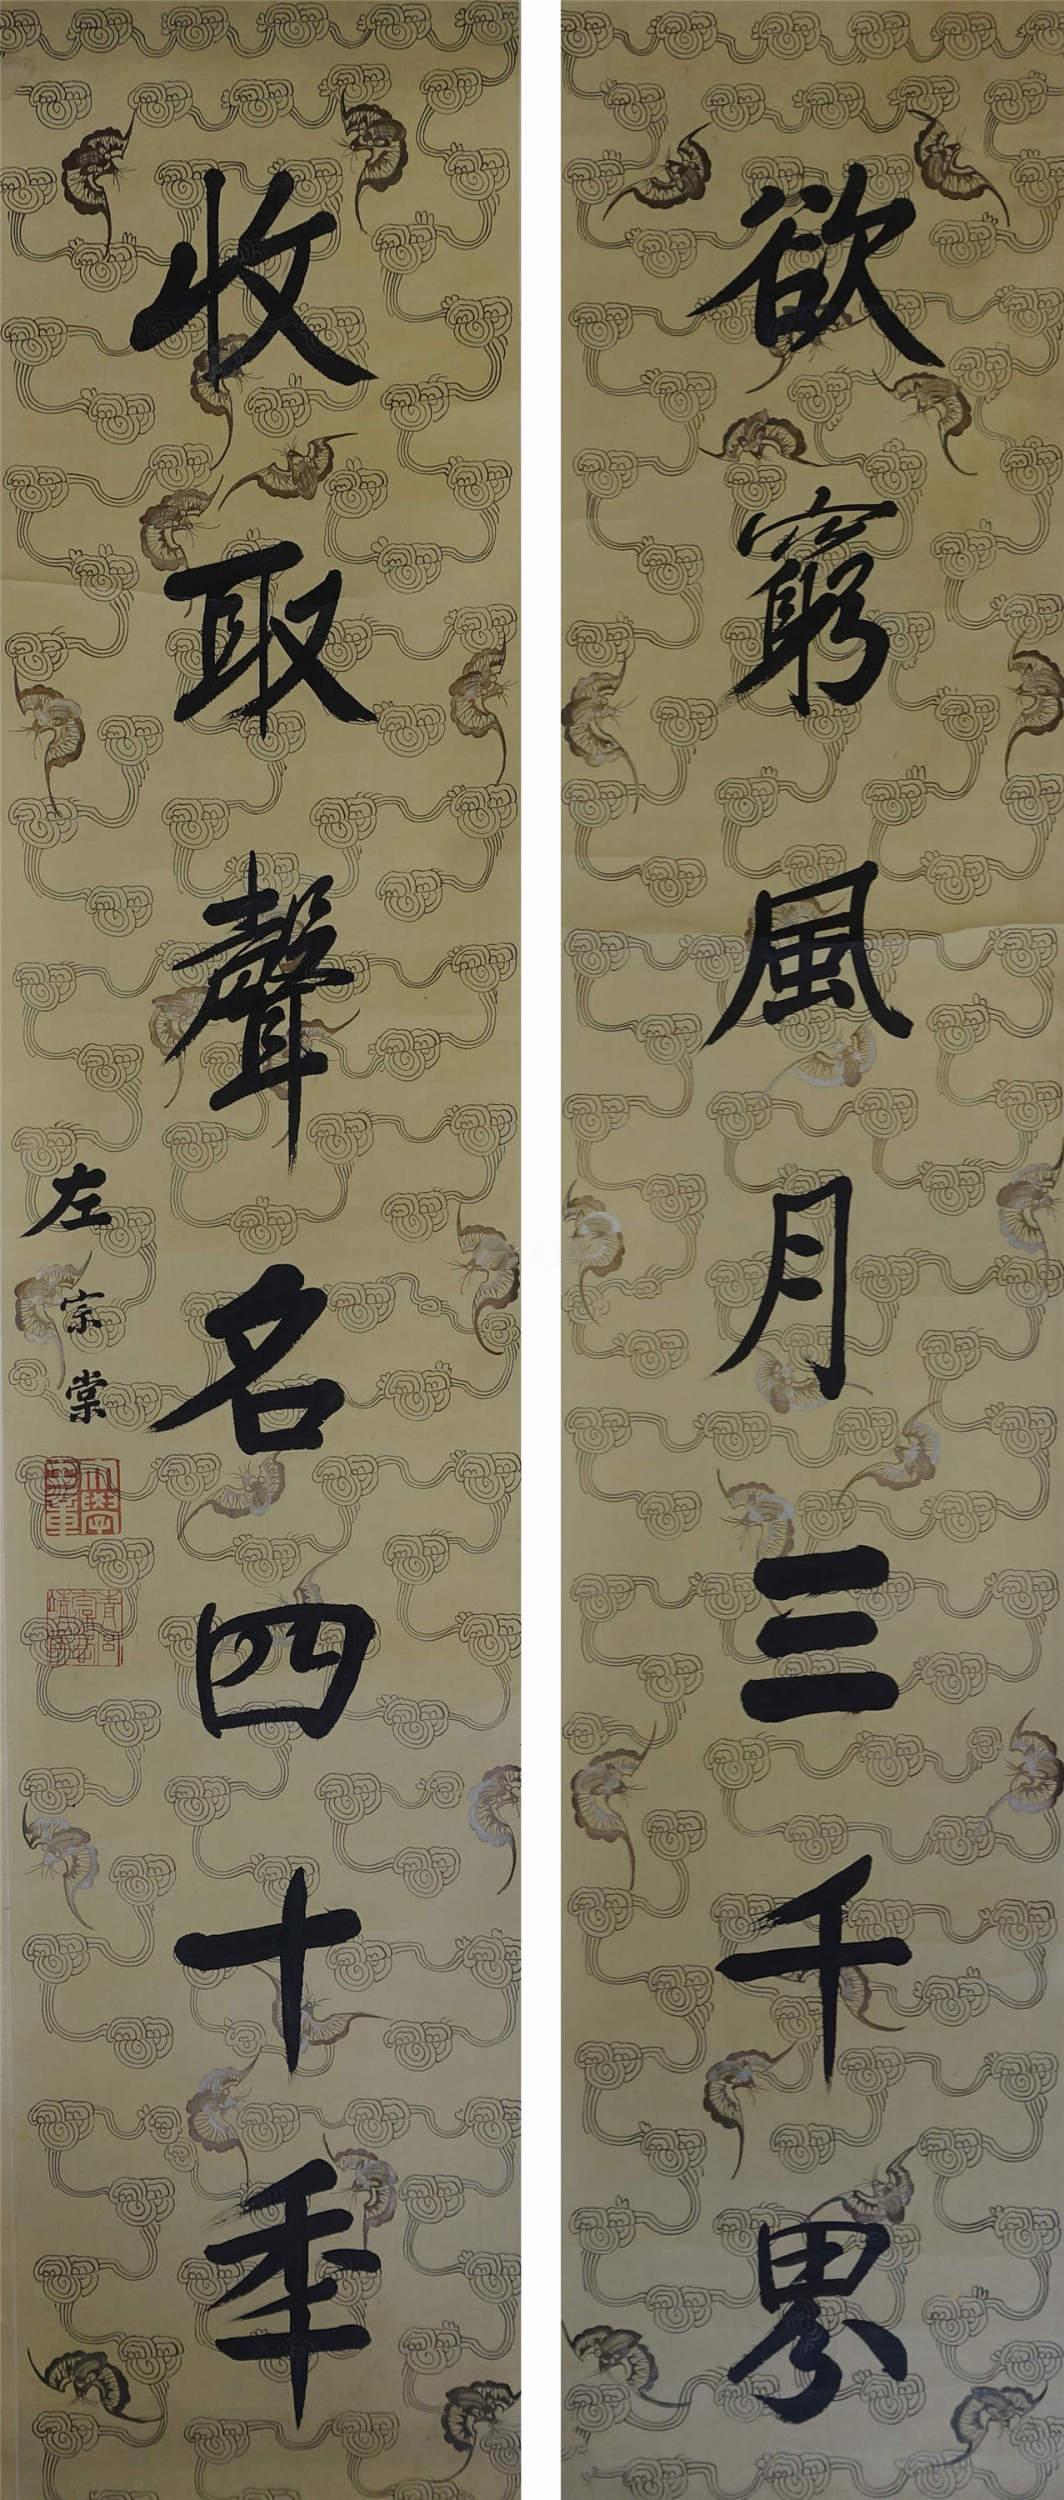 欲窮風月三千界
收取聲名四十年
左宗棠
大學士章